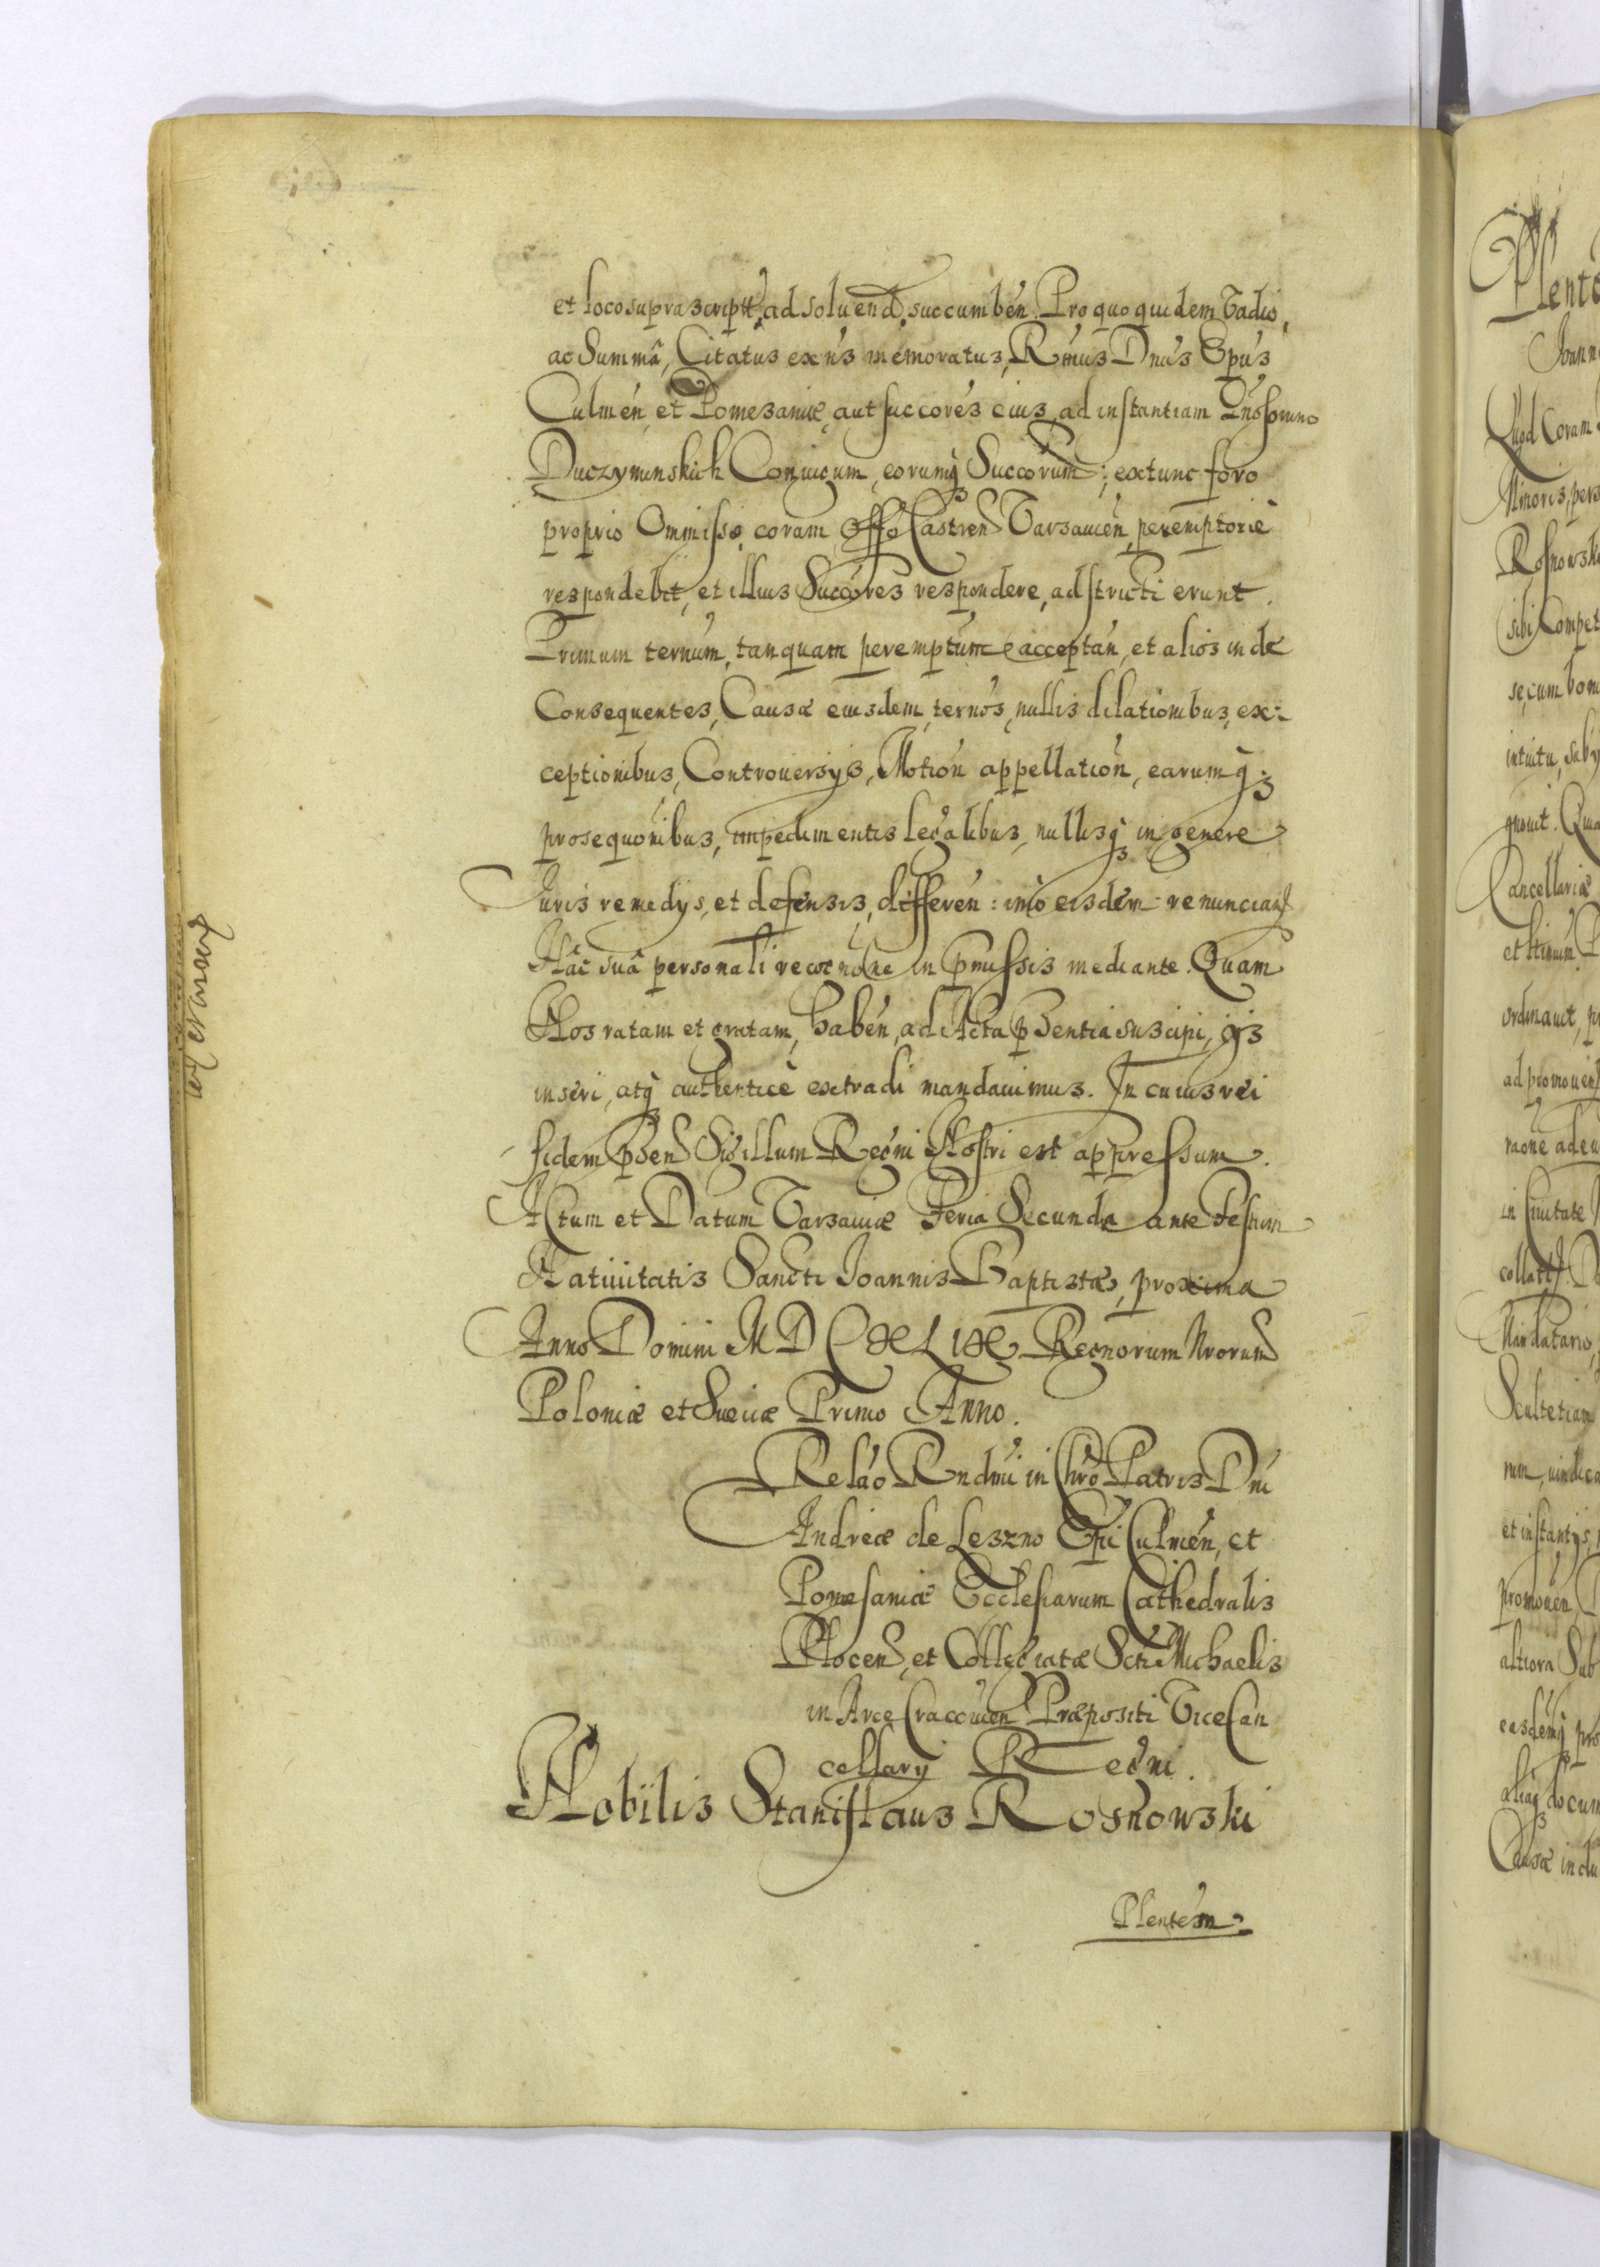 et loco suprascriptt, ad soluend, succumben. Pro quo quidem Vadio,
ac Summâ, Citatus ex nũs memoratus, Rmus Dnus Epus
Culmen, et Pomesaniæ, aut succores eius, ad instantiam
Duczyminskich Coniugum, eorumq Succorum; extunc foro
proprio Ommisso, coram Offo Castren Varsauien, peremptoriè
respondebit, et illius Succores respondere, adstricti erunt.
Primum ternum, tanquam peremptum acceptan, et alios inde
Consequentes, Causæ eiusdem, ternos, nullis dilationibus, ex:
ceptionibus, Controuersys, Motion appellation, earumq;
prosequonibus, impedimentis legalibus, nullisq in genere
Juris remedys, et defensis, differen: imò eisdem renuncian
Hâc suâ personali recognoñe in pmissis mediante. Quam
Nos ratam et gratam, haben, ad Acta psentia suscipi, ijs
inseri, atq authenticè extradi mandauimus. In cuius rei
fidem psen Sigillum Regni Nostri est appressum.
Actum et Datum Varsauiæ Feria Secunda ante Festum
Natiuitatis Sancti Joannis Baptistæ, proxima
Anno Domini M D C XL IX Regnorum Nrorum
Poloniæ et Sueciæ Primo Anno.
Relao Rndmi in Chro Patris Dni
Andreæ de Leszno Epi Culmen, et
Pomesaniæ Ecclesiarum Cathedralis
Plocen, et Collegiatæ Scti Michaelis
in Arce Cracouien Præpositi ViceCan
cellary Regni.
Nobilis Stanislaus Rosnowski
Plentem
Plent
Joann
Quod Coram
Minoris, pers
Rosnowski
sibi Compet
secum bom
intuitu, sub
gnouit. Qua
Cancellariæ
ordinauit, p
ad promouen
mone ad eu
in Ciuitate
collatt. D
Mandatario,
Scultetiam
rum, uindica
et instantys,
promouen, D
altiora Sub
easdemq pro
aliaq docum
Causæ inclu